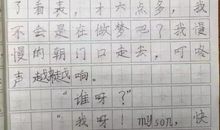 了看表，才六点多，我
不会是在做梦吧？我慢
慢的朝门口走去，叮咚
声越越响。
“谁呀？”
“我呀！myson，快